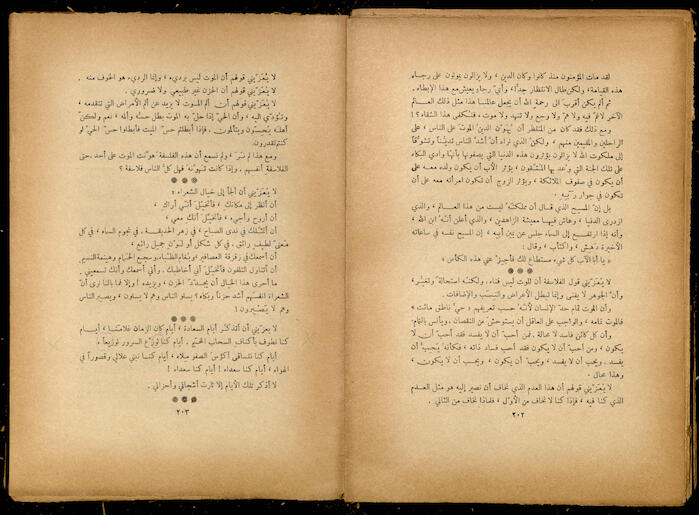 لقد مات المؤمنون منذ كانوا وكان الدين ، ولا يزالون يموتون على رجاء
هذه القيامة ، ولكن طال الانتظار جداً ، وأي رجاء يعيش مع هذا الإبطاء .
ثم ألم يكن أقرب الى رحمة الله أن يجعل عالمنا هذا مثل ذلك العالم
الآخر لا غم فيه ولا هم ولا وجع ولا تنهد ولا موت ، فنكفى هذا الشقاء ؟!
ومع ذلك فقد كان من المنتظر أن يهون الدين الموت على الناس ، على
الراحلين والمقيمين منهم ، ولكنني نراه أن أشد الناس تديناً وتشوقاً
إلى ملكوت الله لا يزالون يؤثرون هذه الدنيا التي يصفونها بأنها وادي البكاء
على تلك الجنة التي وعد بها المتقون ، يؤثر الأب أن يكون ولده معه على
أن يكون في صفوف الملائكة ، ويؤثر الزوج أن تكون امرأته معه على أن
تكون في جوار ربه .
بل إن المسيح الذي قال أن مملكته ليست من هذا العالم ، والذي
ازدرى الدنيا ، وعاش فيها معيشة الزاهدين ، والذي أعلن أنه ابن الله ،
وأنه إذا ارتفع إلى السماء جلس عن يمين أبيه ، إن المسيح نفسه في ساعاته
الأخيرة دهش ، واكتأب ، وقال :
« يا أبا الآب كل شيء مستطاع لك فأجز عني هذه الكأس »
لا يعزيني قول الفلاسفة أن الموت ليس فناء ، ولكنه استحالة وتغير ،
وأن الجوهر لا يفنى وإنما تبطل الأعراض والنسب والإضافات .
وأن الموت تمام حد الإنسان لأنه حسب تعريفهم « حي ناطق مائت »
فالموت تمامه ، والواجب على العاقل أن يستوحش من النقصان ويأنس بالتمام.
وأن كل كائن فاسد لا محالة . فمن أحب أن لا يفسد فقد أحب أن لا
يكون ، ومن أحب أن لا يكون فقد أحب فساد ذاته ، فكأنه يحب أن
يفسد ، ويحب أن لا يفسد ، ويحب أن يكون ، ويحب أن لا يكون ،
وهذا محال .
لا يعزيني قولهم أن هذا العدم الذي نخاف أن نصير إليه هو مثل العدم
الذي كنا فيه ، فإذا كنا لا نخاف من الأول ، فلماذا نخاف من الثاني .
٢٠٢
لا يعزيني قولهم أن الموت ليس برديء ، وإنما الرديء هو الخوف منه .
لا يعزيني قولهم أن الحزن غير طبيعي ولا ضروري .
لا يعزيني قولهم أن ألم الموت لا يزيد عن ألم الأمراض التي تتقدمه ،
وتؤدي اليه ، وأن الحي إذا حل به الموت بطل حسه وألمه ، نعم ولكن
أهله يحسون ويتألمون . فإذا أبطلتم حس الميت فأبطلوا حس الحي لو
كنتم تقدرون .
ومع هذا لم نر ، ولم نسمع أن هذه الفلسفة هونت الموت على أحد حتى
الفلاسفة أنفسهم ، وإذا كانت تهونه فهل كل الناس فلاسفة ؟
لا يعزيني أن ألجأ إلى خيال الشعراء :
أن أنظر إلى مكانك ، فأتخيل أنني أراك ،
أن أروح وأجيء ، فأتخيل أنك معي ،
أن أتمثلك في ندى الصباح ، في زهر الحديقة ، في نجوم السماء ، في كل
معنى لطيف رائق . في كل شكل أو لون جميل رائع ،
أن أسمعك في زقزقة العصافير ، وبغام الظباء ، وسجع الحمام وهينمة النسيم.
أن أتناول التلفون فأتخيل أني أخاطبك . وأني أسمعك وأنك تسمعيني .
ما أحرى هذا الخيال أن يجدد الحزن ، ويزيده ! وإلا فما بالنا نرى أن
الشعراء أنفسهم أشد حزناً وبكاء ! يسلو الناس وهم لا يسلون ، ويصبر الناس
وهم لا يصبرون !
لا يعزيني أن أتذكر أيام السعادة ، أيام كان الزمان غلامنا ، أيام
كنا نطوف بأكناف السحاب المخيم . أيام كنا نوزع السرور توزيعاً ،
أيام كنا نتساقى أكؤس الصفو ملاء ، أيام كنا نبني علالي وقصوراً في
الهواء ، أيام كنا سعداء ! أيام كنا سعداء !
لا أذكر تلك الأيام إلا ثارت أشجاني وأحزاني .
٢٠٣